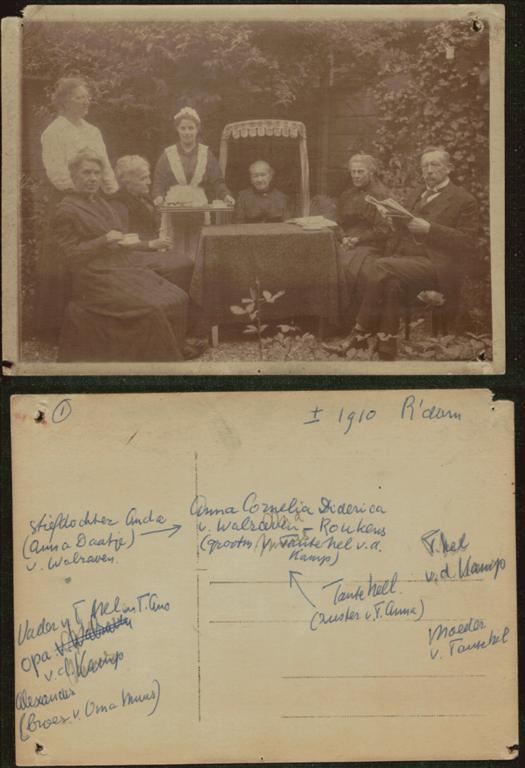 ①
± 1910 R'dam
stiefdochter Anda
(Anna Daatje)
v. Walraven
Anna Cornelia Diderica
v. Walraven - Roukens
(grootm v. Tante Nel v.d.
Kamp)
Tante Nell
(zuster v. T. Anna)
T. Nel
v.d. Kamp
Moeder
v. Tante Nel
Vader v T. Nel en T. Ano
opa
v.d. Kamp
Alexander
(broer v. Oma Muus)